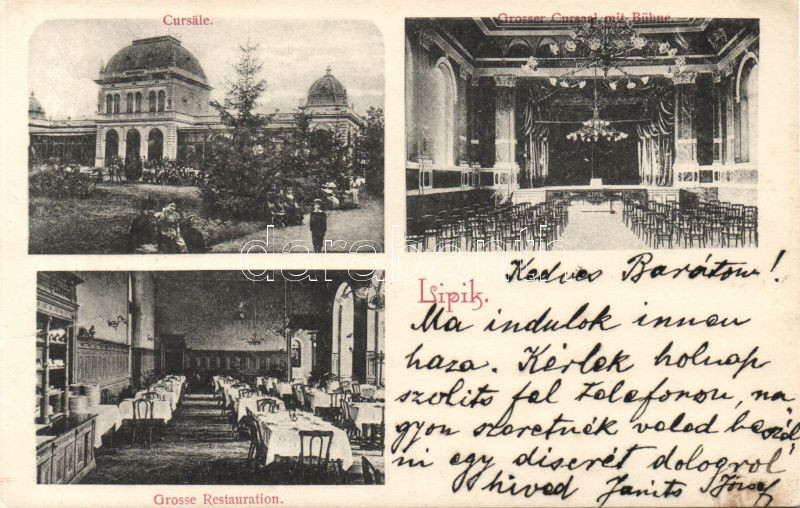 Cursäle.
Grosser Cursaal mit Bühne.
darabanth
Lipik.
Kedves Barátom!
Ma indulok innen
haza. Kérlek holnap
szolits fel telefonon, na
gyon szeretnék veled beszél
ni egy diserét dologrol
hived Janits József
Grosse Restauration.